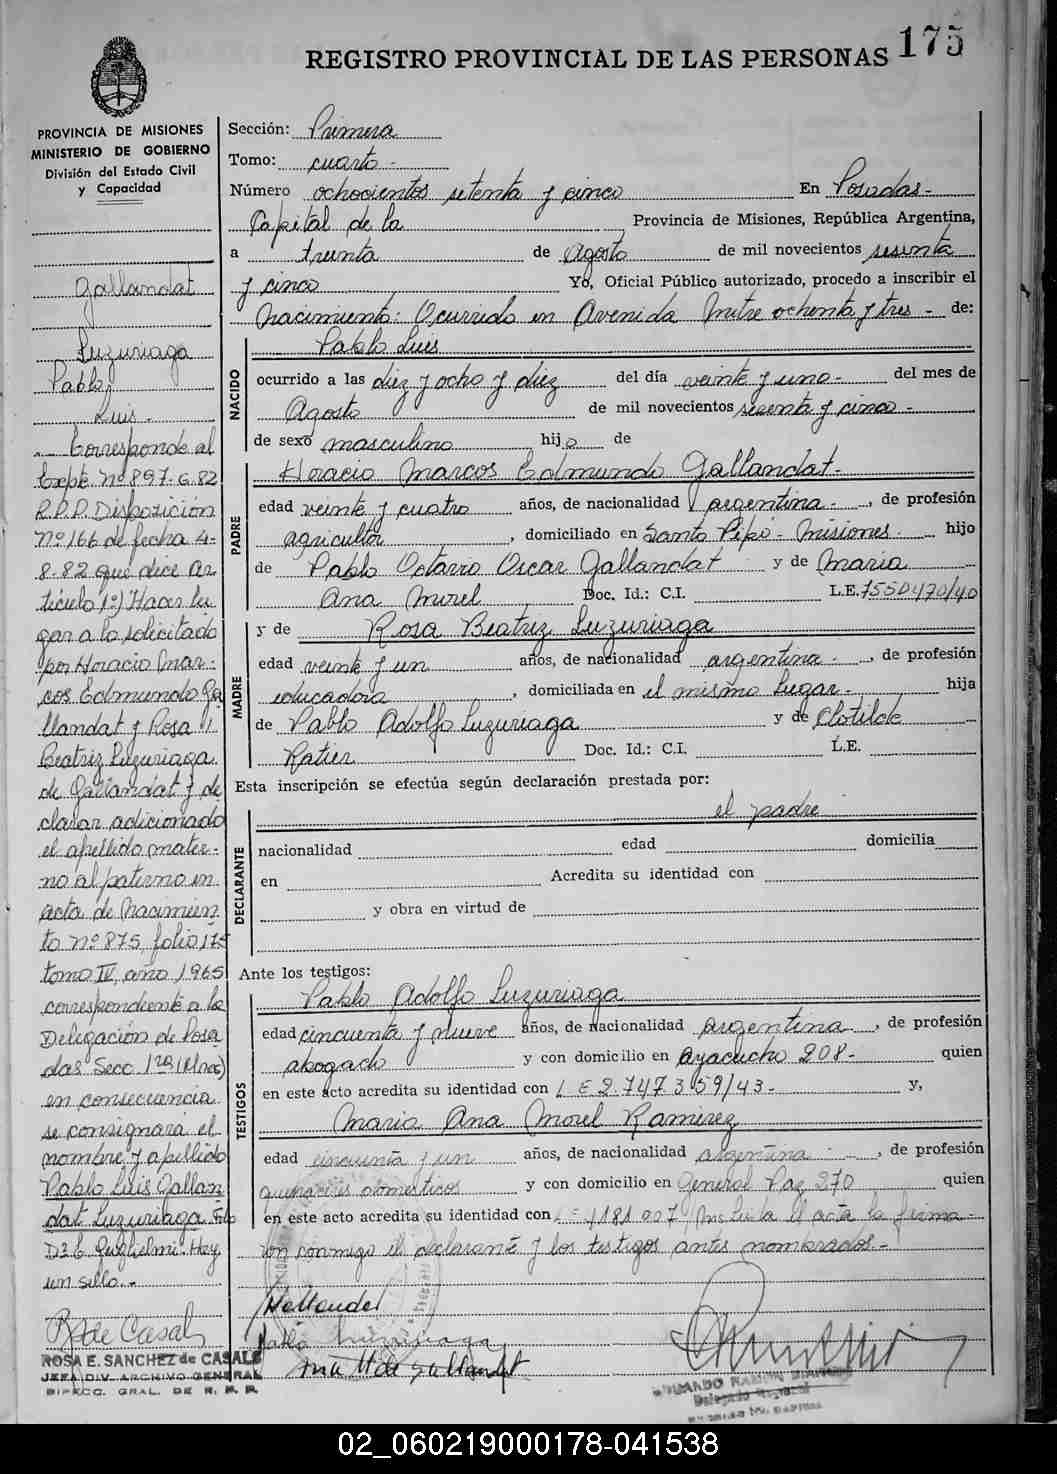 REGISTRO PROVINCIAL DE LAS PERSONAS 175
PROVINCIA DE MISIONES
MINISTERIO DE GOBIERNO
División del Estado Civil
y Capacidad
Gallandat
Luzuriaga
Pablo
Luis.
Corresponde al
Expte. nº 897-G-82
R.P.P. Disposición
Nº 166 de fecha 4-
8-82 que dice Ar
tículo 1º) Hacer lu
gar a lo solicitado
por Horacio Mar-
cos Edmundo Ga
llandat y Rosa
Beatriz Luzuriaga
de Gallandat y de
clarar adicionado
el apellido mater-
no al paterno en
acta de Nacimien
to nº 875, folio 175
tomo IV, año 1965
correspondiente a la
Delegación de Posa
das Secc 1ra (Mnes)
en consecuencia
se consignara el
nombre y apellido
Pablo Luis Gallan
dat Luzuriaga Fdo
D. Guglielmi. Hay
un sello.-
R S de Casals
ROSA E. SANCHEZ de CASALS
JEFA DIV. ARCHIVO GENERAL
DIRECC. GRAL. DE R. P. P.
Sección: Primera
Tomo: cuarto -
Número ochocientos setenta y cinco En Posadas-
Capital de la Provincia de Misiones, República Argentina,
a treinta de Agosto de mil novecientos sesenta
y cinco Yo, Oficial Público autorizado, procedo a inscribir el
Nacimiento: Ocurrido en Avenida Mitre ochenta y tres - de:
NACIDO
Pablo Luis
ocurrido a las diez y ocho y diez del día veinte y uno- del mes de
Agosto de mil novecientos sesenta y cinco -
de sexo masculino hijo de
PADRE
Horacio Marcos Edmundo Gallandat-
edad veinte y cuatro años, de nacionalidad argentina -, de profesión
agricultor, domiciliado en Santo Pipó - Misiones. hijo
de Pablo Octavio Oscar Gallandat y de Maria
Ana Morel Doc. Id.: C.I. L.E. 7550470/40
MADRE
y de Rosa Beatriz Luzuriaga
edad veinte y un años, de nacionalidad argentina -, de profesión
educadora, domiciliada en el mismo lugar - hija
de Pablo Adolfo Luzuriaga y de Clotilde
Ratier Doc. Id.: C.I. L.E.
Esta inscripción se efectúa según declaración prestada por:
DECLARANTE
el padre
nacionalidad edad domicilia
en Acredita su identidad con
y obra en virtud de
Ante los testigos:
TESTIGOS
Pablo Adolfo Luzuriaga
edad cincuenta y nueve años, de nacionalidad argentina -, de profesión
abogado y con domicilio en Ayacucho 208- quien
en este acto acredita su identidad con L E 2.747359/43- y,
Maria Ana Morel Ramirez
edad cincuenta y un años, de nacionalidad argentina -, de profesión
quehaceres domesticos y con domicilio en General Paz 270 quien
en este acto acredita su identidad con 1181007 el acta la firma-
con conmigo el declarante y los testigos antes nombrados.-
HGallandat
Pablo Luzuriaga
Ana M de Gallandat
EDUARDO RAMON
Delegado Regional
02_060219000178-041538